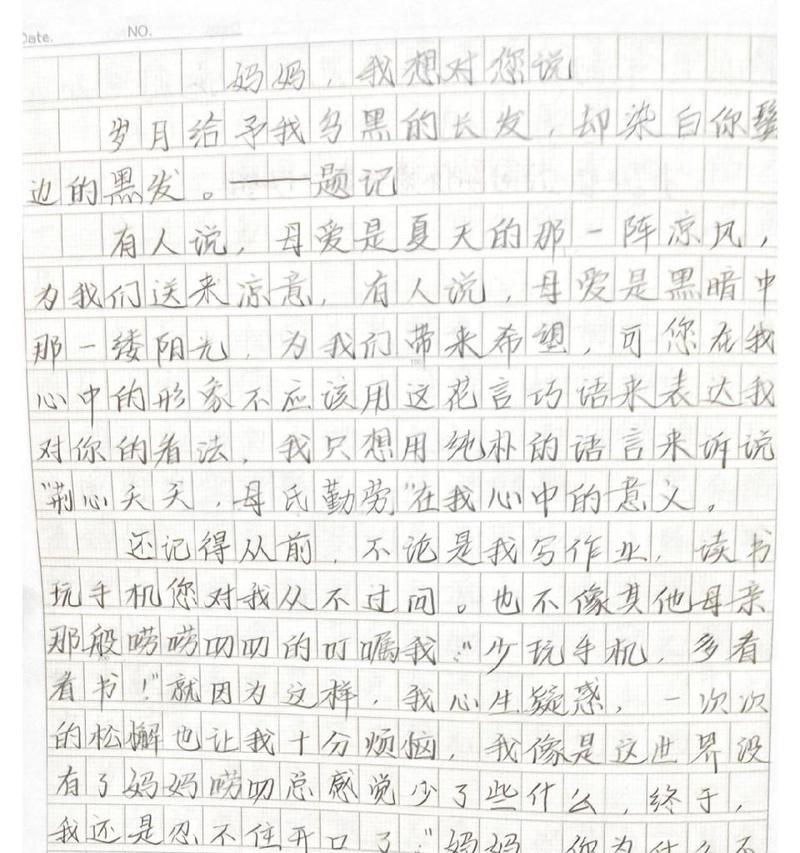 Date. NO.
妈妈，我想对您说
岁月给予我乌黑的长发，却染白你鬓
边的黑发。——题记
有人说，母爱是夏天的那一阵凉风，
为我们送来凉意，有人说，母爱是黑暗中
那一缕阳光，为我们带来希望，可您在我
心中的形象不应该用这花言巧语来表达我
对你的看法，我只想用纯朴的语言来诉说
"荆心夭夭，母氏勤劳"在我心中的意义。
还记得从前，不论是我写作业，读书
玩手机您对我从不过问。也不像其他母亲
那般唠唠叨叨的叮嘱我："少玩手机，多看
看书！"就因为这样，我心生疑惑，一次次
的松懈也让我十分烦恼，我像是这世界没
有了妈妈唠叨总感觉少了些什么，终于，
我还是忍不住开口了："妈妈，你为什么不